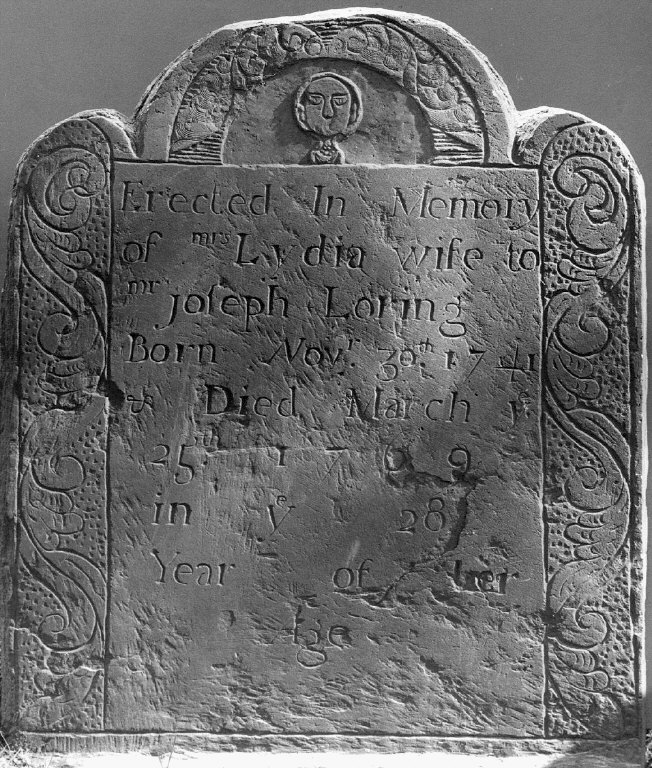 Erected In Memory
of mrs Lydia wife to
mr Joſeph Loring
Born Novr. 30th. 1741
& Died March ye
25th 1769
in ye 28
Year of her
Age